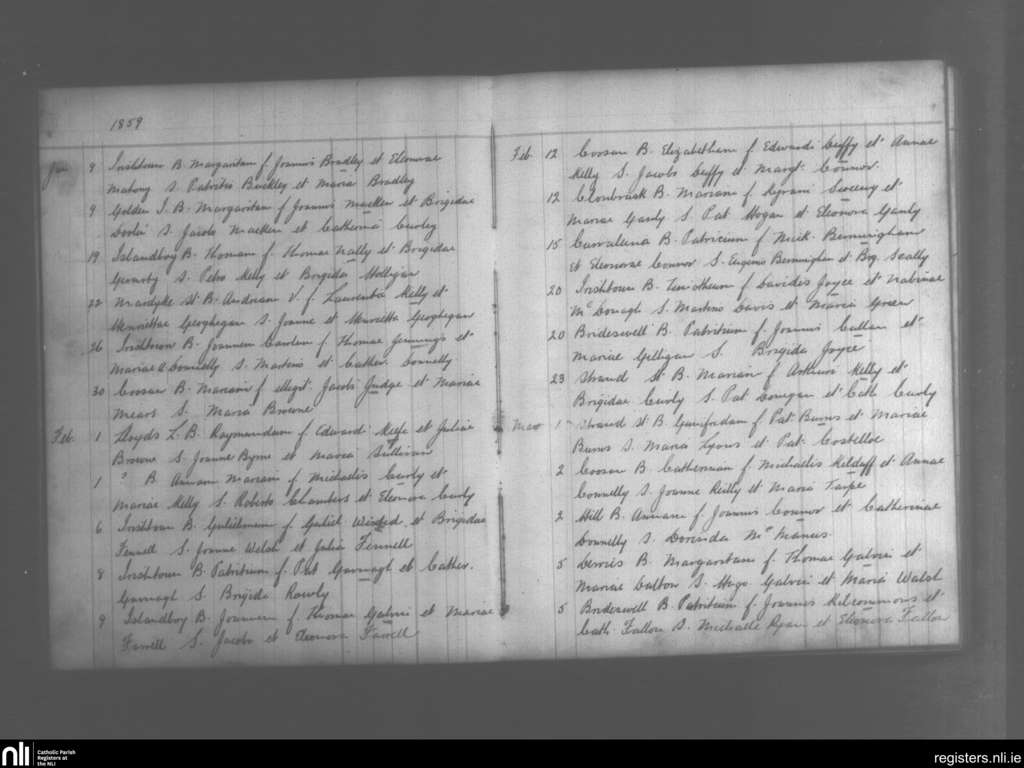 1859
Jan 9 Irishtown B. Margaritam f. Joannis Bradley et Eleonorae
Mahony S. Patritii Buckley et Maria Bradley
9 Golden I. B. Margaritam f. Joannis Macken et Brigidae
S. Jacobo Macken et Catherina Curley
19 Islandboy B. Thomam f. Thomae Nally et Brigidae
S. Petro Kelly et Brigida Molligan
22 Mardyke St B. Andream V. f. Laurentii Kelly et
Henriettae Geoghegan S. Joanne et Henrietta Geoghegan
26 Irishtown B. Joannem Carolum f. Thomae Jennings et
Mariae Connelly S. Martino et Cather. Connelly
30 Coosan B. Mariam f. illegit. Jacobi Judge et Mariae
Mears S. Maria Browne
Feb. 1 Lloyds L. B. Raymundum f. Edwardi Keefe et Juliae
Browne S. Joanne Byrne et Maria Sullivan
1 ? B. Annam Mariam f. Michaelis Curly et
Mariae Kelly S. Roberto Chambers et Eleonora Curly
6 Irishtown B. Gulielmum f. Guliel. et Brigidae
Fennell S. Joanne Welsh et Julia Fennell
8 Irishtown B. Patritium f. Pat Gavnagt et Cather.
Gavnagt S. Brigida Rowly
9 Islandboy B. Joannem f. Thomae Galvin et Mariae
Farrell S. Jacobo et Eleonora Farrell
Feb. 12 Coosan B. Elizabetham f. Edwardi Cuffy et Annae
Kelly S. Jacobo Cuffy et Margt. Connor.
12 Clonbrusk B. Mariam f. Kyrani Sweeny et
Mariae Gauly S. Pat Hogan et Eleonora Gauly
15 B. Patricium f. Mich. Bermingham
et Eleonorae Connor S. Eugenio Bermingham et Brig. Scally
20 Irishtown B. Timotheum f. Davidis Joyce et Sabinae
McDonagh S. Martino Davis et Maria Green
20 Brideswell B. Patritium f. Joannis Callan et
Mariae Gilligan S. Brigida Joyce
23 Strand St B. Mariam f. Arthuri Kelly et
Brigidae Curly S. Pat Donegan et Cath Curly
Mar 1 Strand St B. f. Pat Burns et Mariae
Burns S. Maria Lyons et Pat. Costelloe
2 Coosan B. Catherinam f. Michaelis Kilduff et Annae
Connelly S. Joanne Reilly et Maria Tarpe
2 Hill B. Annam f. Joannis Connor et Catherinae
Donnelly S. Dorinda McManus
5 B. Margaritam f. Thomae Galvin et
Mariae Dalton S. Hugo Galvin et Maria Walsh
5 Brideswell B. Patritium f. Joannis Kilcommons et
Cath. Fallon S. Michaele Ryan et Eleonora Fallon
nli
Catholic Parish
Registers at
the NLI
registers.nli.ie